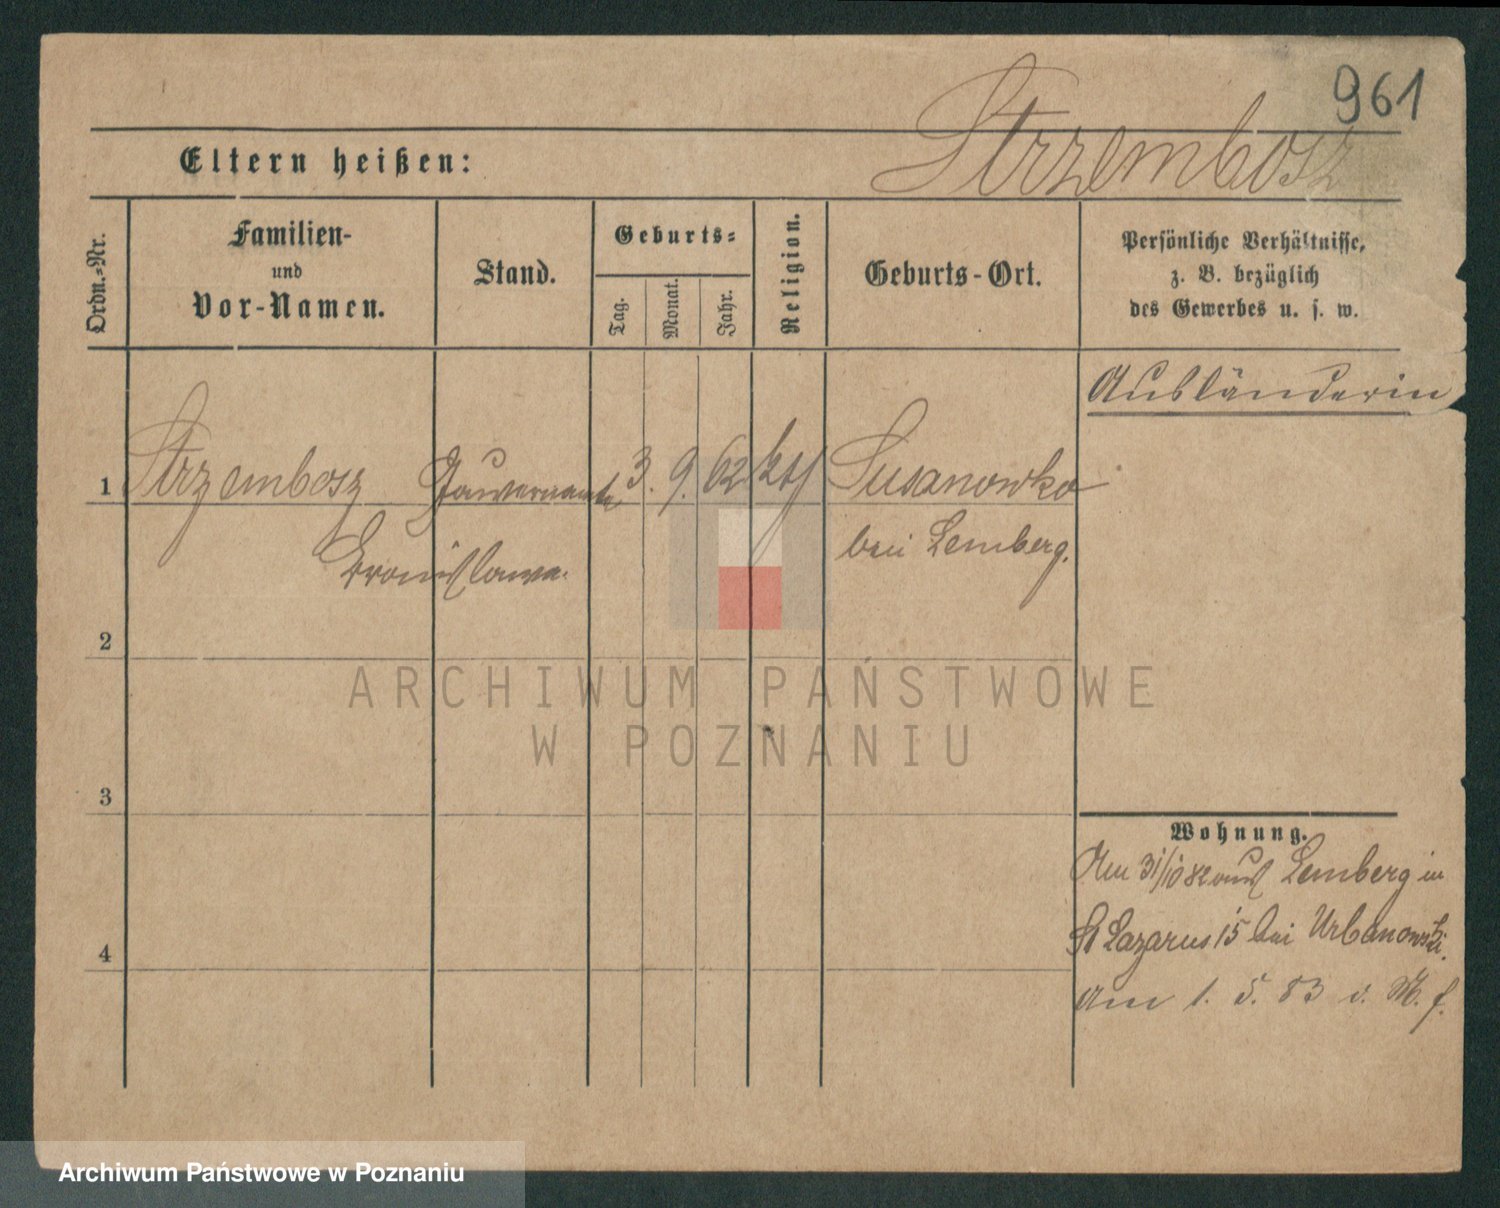 961
Strzembosz
Eltern heißen:
Ordn.-Nr.
Familien-
und
Vor-Namen.
Stand.
Geburts-
Tag.
Monat.
Jahr.
Religion.
Geburts-Ort.
Persönliche Verhältnisse,
z. B. bezüglich
des Gewerbes u. s. w.
Ausländerin
1 Strzembosz Gouvernante 3. 9. 62 kth Susanowka
Bronislawa. bei Lemberg.
2
ARCHIWUM PAŃSTWOWE
W POZNANIU
3
Wohnung.
Am 31/10 82 aus Lemberg in
St Lazarus 15 bei Urbanowski.
4
am 1. 5. 83 v. M. f.
Archiwum Państwowe w Poznaniu